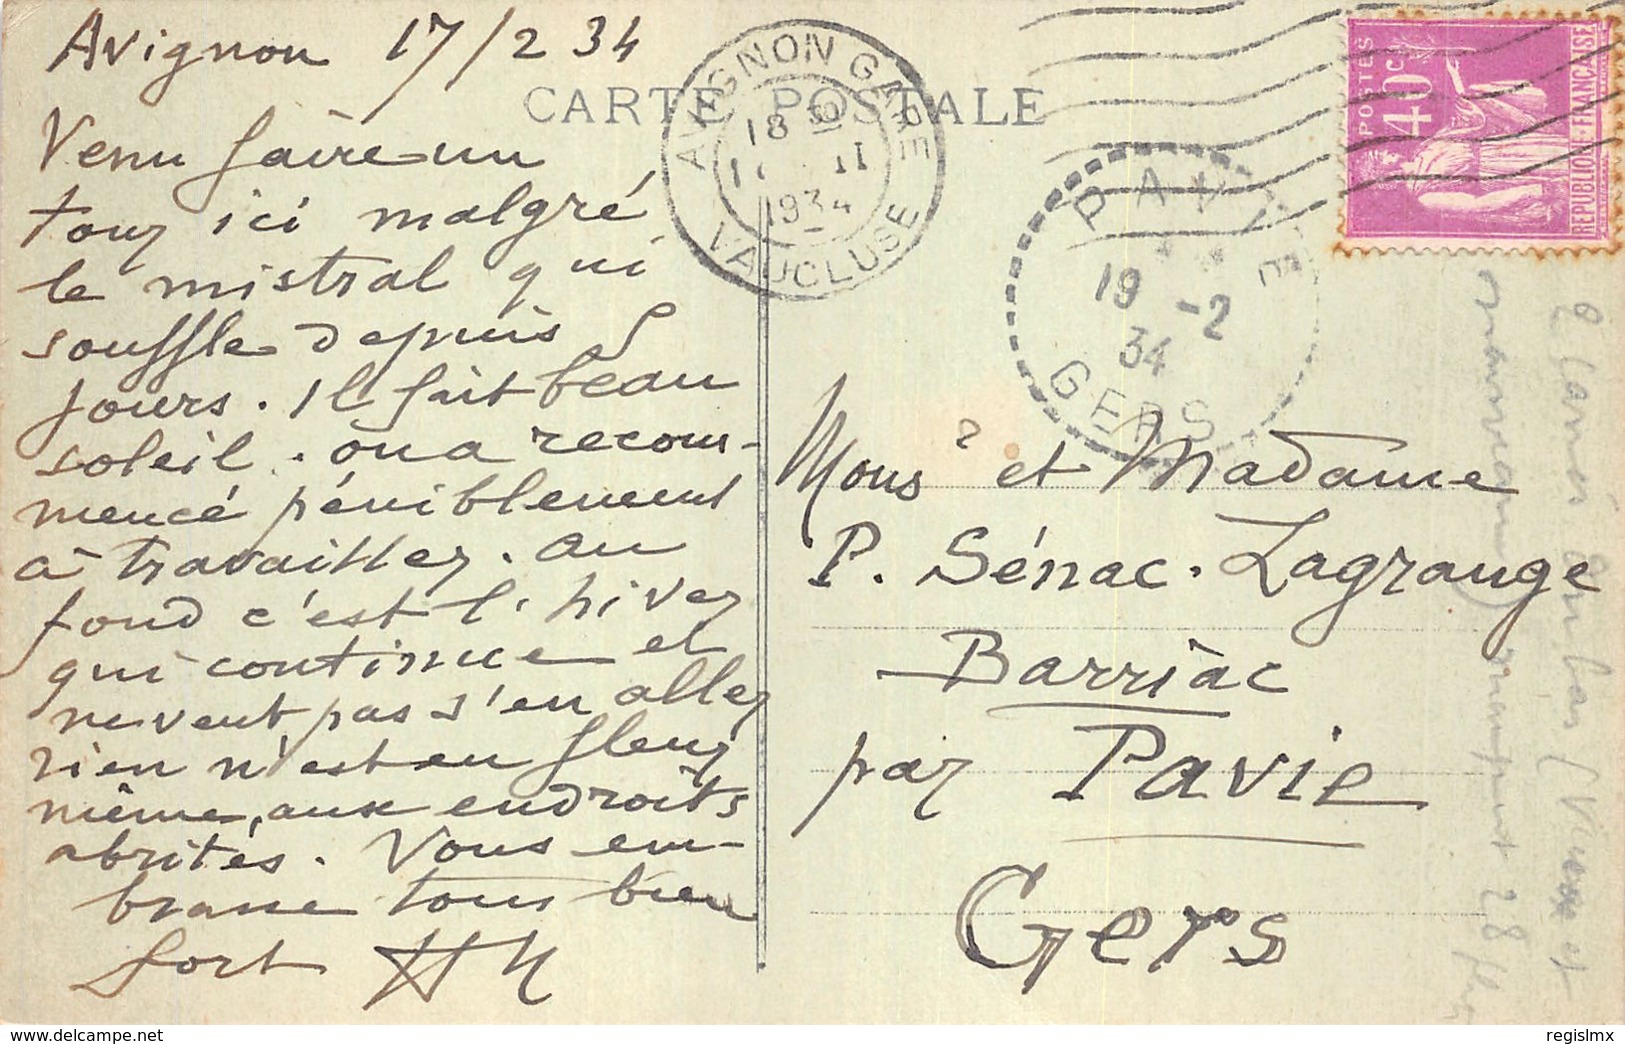 Avignon 17/2 34
CARTE POSTALE
Venu faire un
tour ici malgré
le mistral qui
souffle depuis 5
jours. Il fait beau
soleil. on a recom-
mencé péniblement
à travailler. au
fond c'est l'hiver
qui continue et
ne veut pas s'en aller
rien n'est en fleur
même, aux endroits
abrités. Vous em-
brasse tous bien
fort
AVIGNON GARE
18
II
1934
VAUCLUSE
PAVIE
19 -2
34
GERS
POSTES
40c
REPUBLIQUE FRANÇAISE
Mons et Madame
P. Sénac. Lagrange
Barriac
par Pavie
Gers
delcampe.net
regislmx